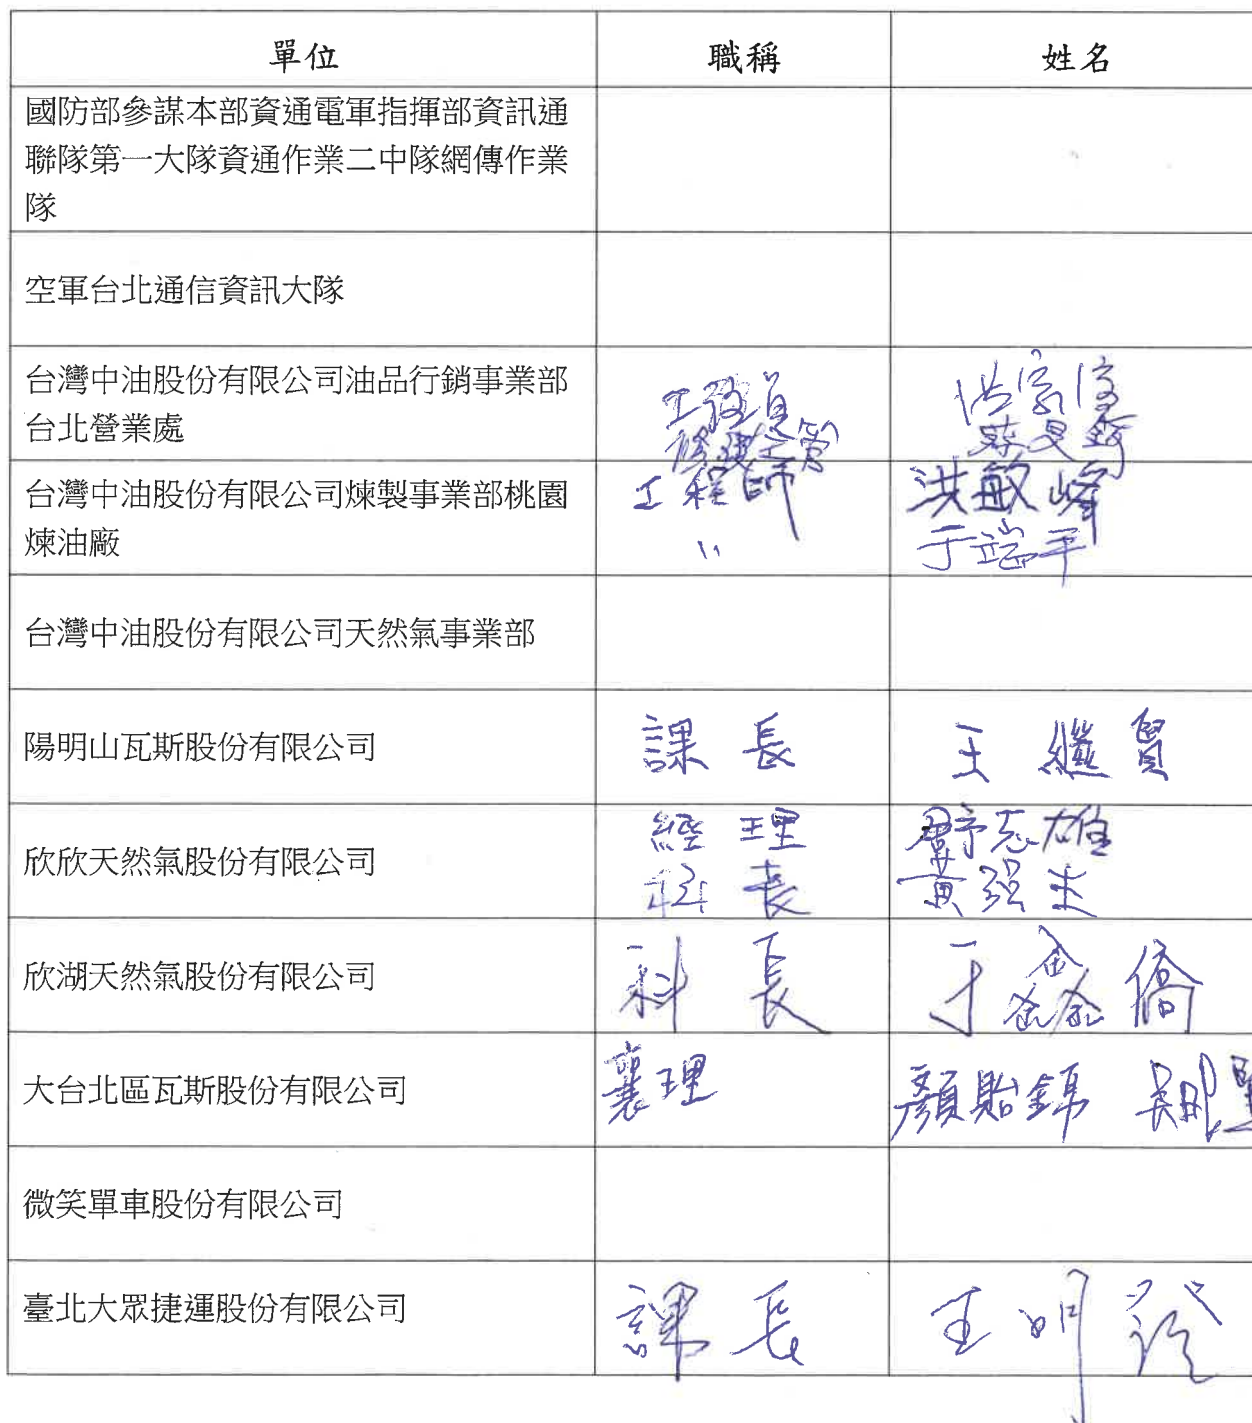 單位 職稱 姓名
國防部參謀本部資通電軍指揮部資訊通
聯隊第一大隊資通作業二中隊網傳作業
隊
空軍台北通信資訊大隊
台灣中油股份有限公司油品行銷事業部
台北營業處
工程師 洪敏峰
台灣中油股份有限公司煉製事業部桃園
煉油廠
〃 于端平
台灣中油股份有限公司天然氣事業部
陽明山瓦斯股份有限公司 課長 王繼貿
經理 志雄
欣欣天然氣股份有限公司
科長 黃強
欣湖天然氣股份有限公司 科長 于鑫僑
大台北區瓦斯股份有限公司 襄理 顏貽錦
微笑單車股份有限公司
臺北大眾捷運股份有限公司 課長 王明